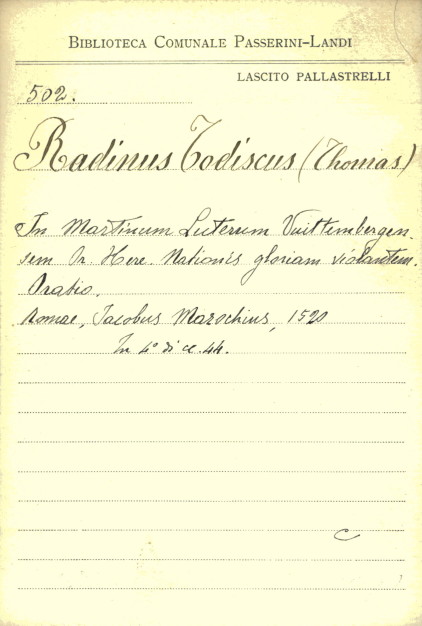 BIBLIOTECA COMUNALE PASSERINI-LANDI
LASCITO PALLASTRELLI
502.
Radinus Todiscus (Thomas)
In Martinum Luterum Vuittembergen.
sem Or Here. Nationis gloriam violantem.
Oratio.
Romae, Jacobus Mazochius, 1520
In 4° di cc. 44.
C